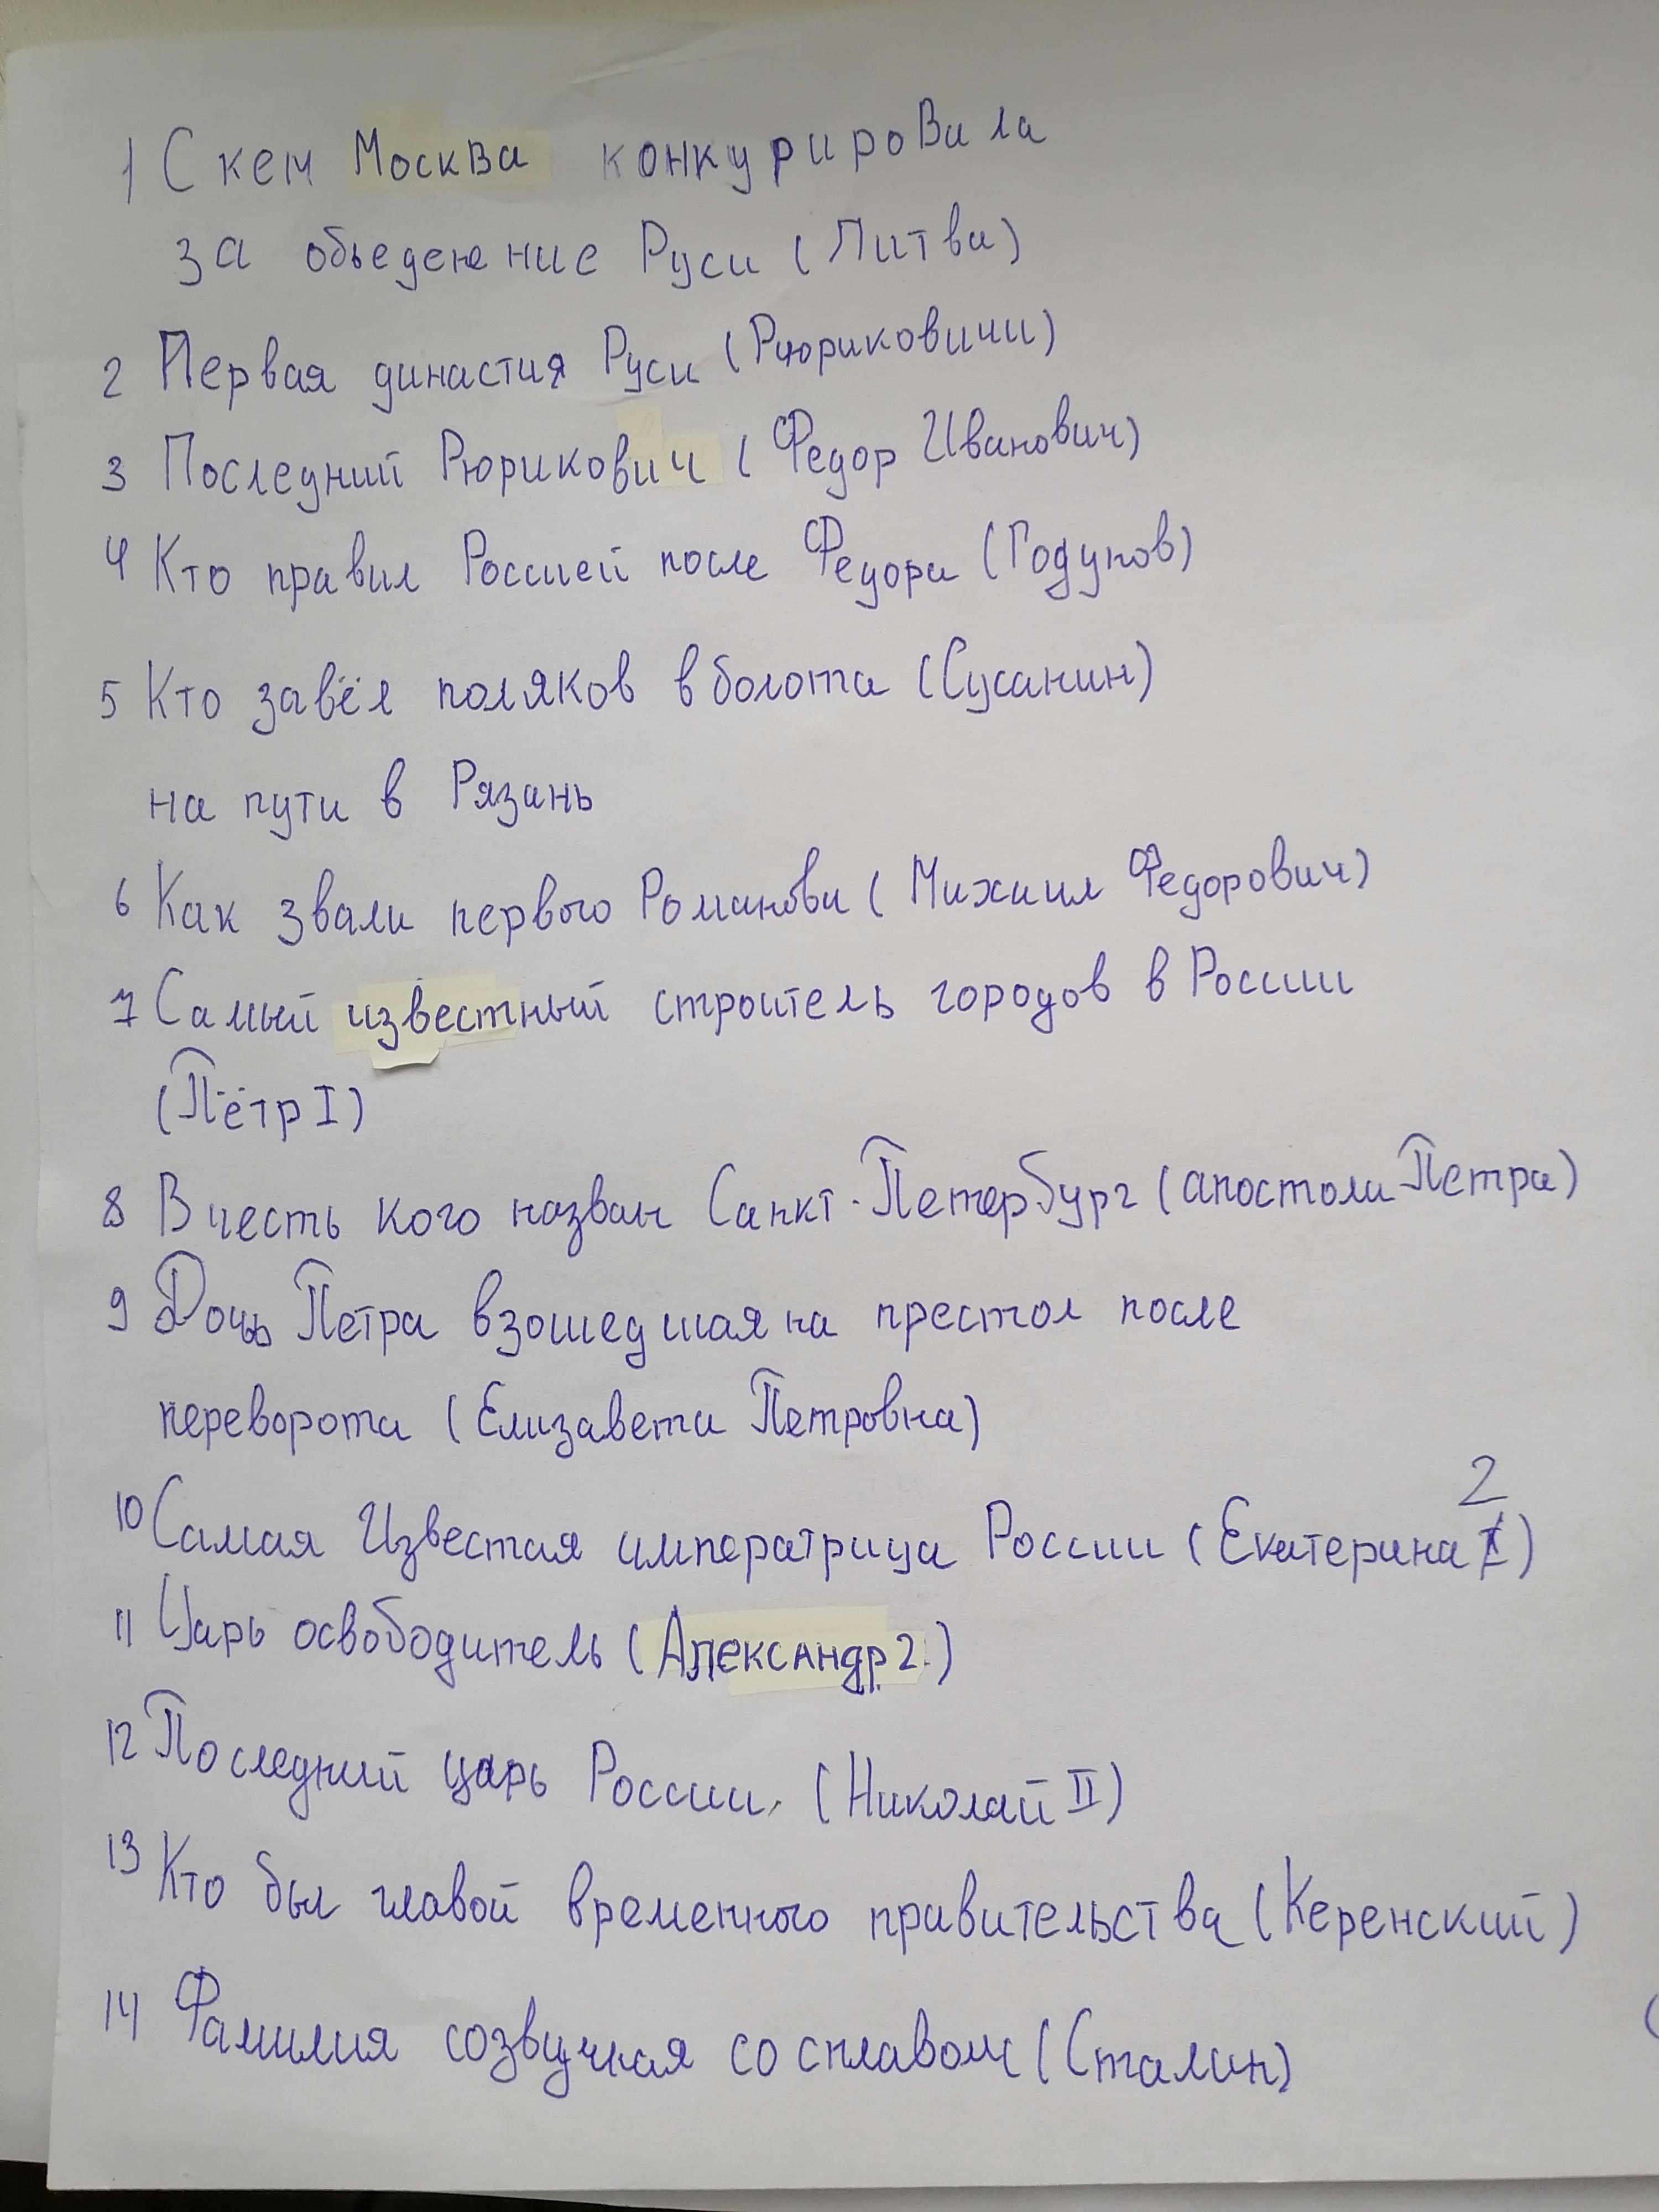 1 С кем Москва конкурировала
за обьеденение Руси (Литва)
2 Первая династия Руси (Рюриковичи)
3 Последний Рюрикович (Федор Иванович)
4 Кто правил Россией после Федора (Годунов)
5 Кто завёл поляков в болота (Сусанин)
на пути в Рязань
6 Как звали первого Романова (Михаил Федорович)
7 Самый известный строитель городов в России
(Пётр I)
8 В честь кого назван Санкт-Петербург (апостола Петра)
9 Дочь Петра взошедшая на престол после
переворота (Елизавета Петровна)
10 Самая Известая императрица России (Екатерина 2)
11 Царь освободитель (Александр 2)
12 Последний царь России. (Николай II)
13 Кто был главой временного правительства (Керенский)
14 Фамилия созвучная со сплавом (Сталин)